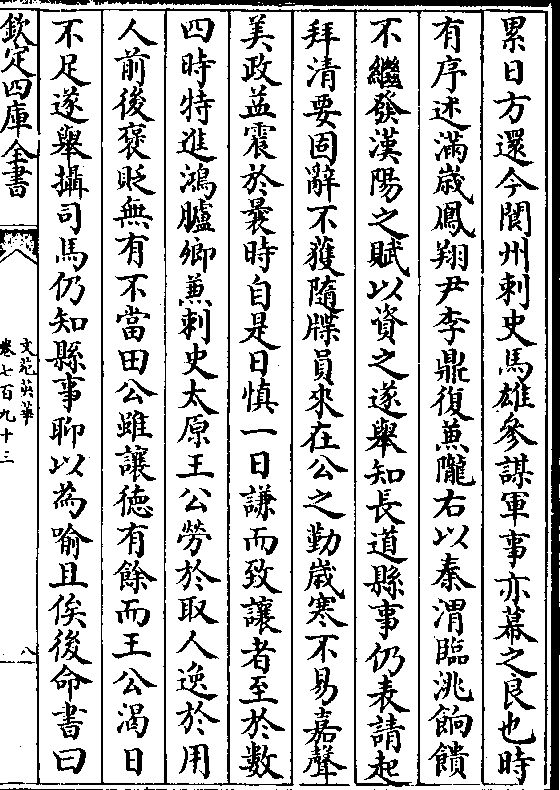 累日方還今閬州刺史馬雄參謀軍事亦幕之良也時
有序述滿歳鳳翔尹李鼎復兼隴右以秦渭臨洮餉饋
不繼發漢陽之賦以資之遂舉知長道縣事仍表請起
拜清要固辭不獲隨牒員來在公之勤歳寒不易嘉聲
美政益震於曩時自是日慎一日謙而致讓者至於數
四時特進鴻臚卿兼刺史太原王公勞於取人逸於用
人前後褒貶無有不當田公雖讓徳有餘而王公渴日
不足遂舉攝司馬仍知縣事聊以為喻且俟後命書曰
欽定四庫全書
文苑英華
卷七百九十三
八